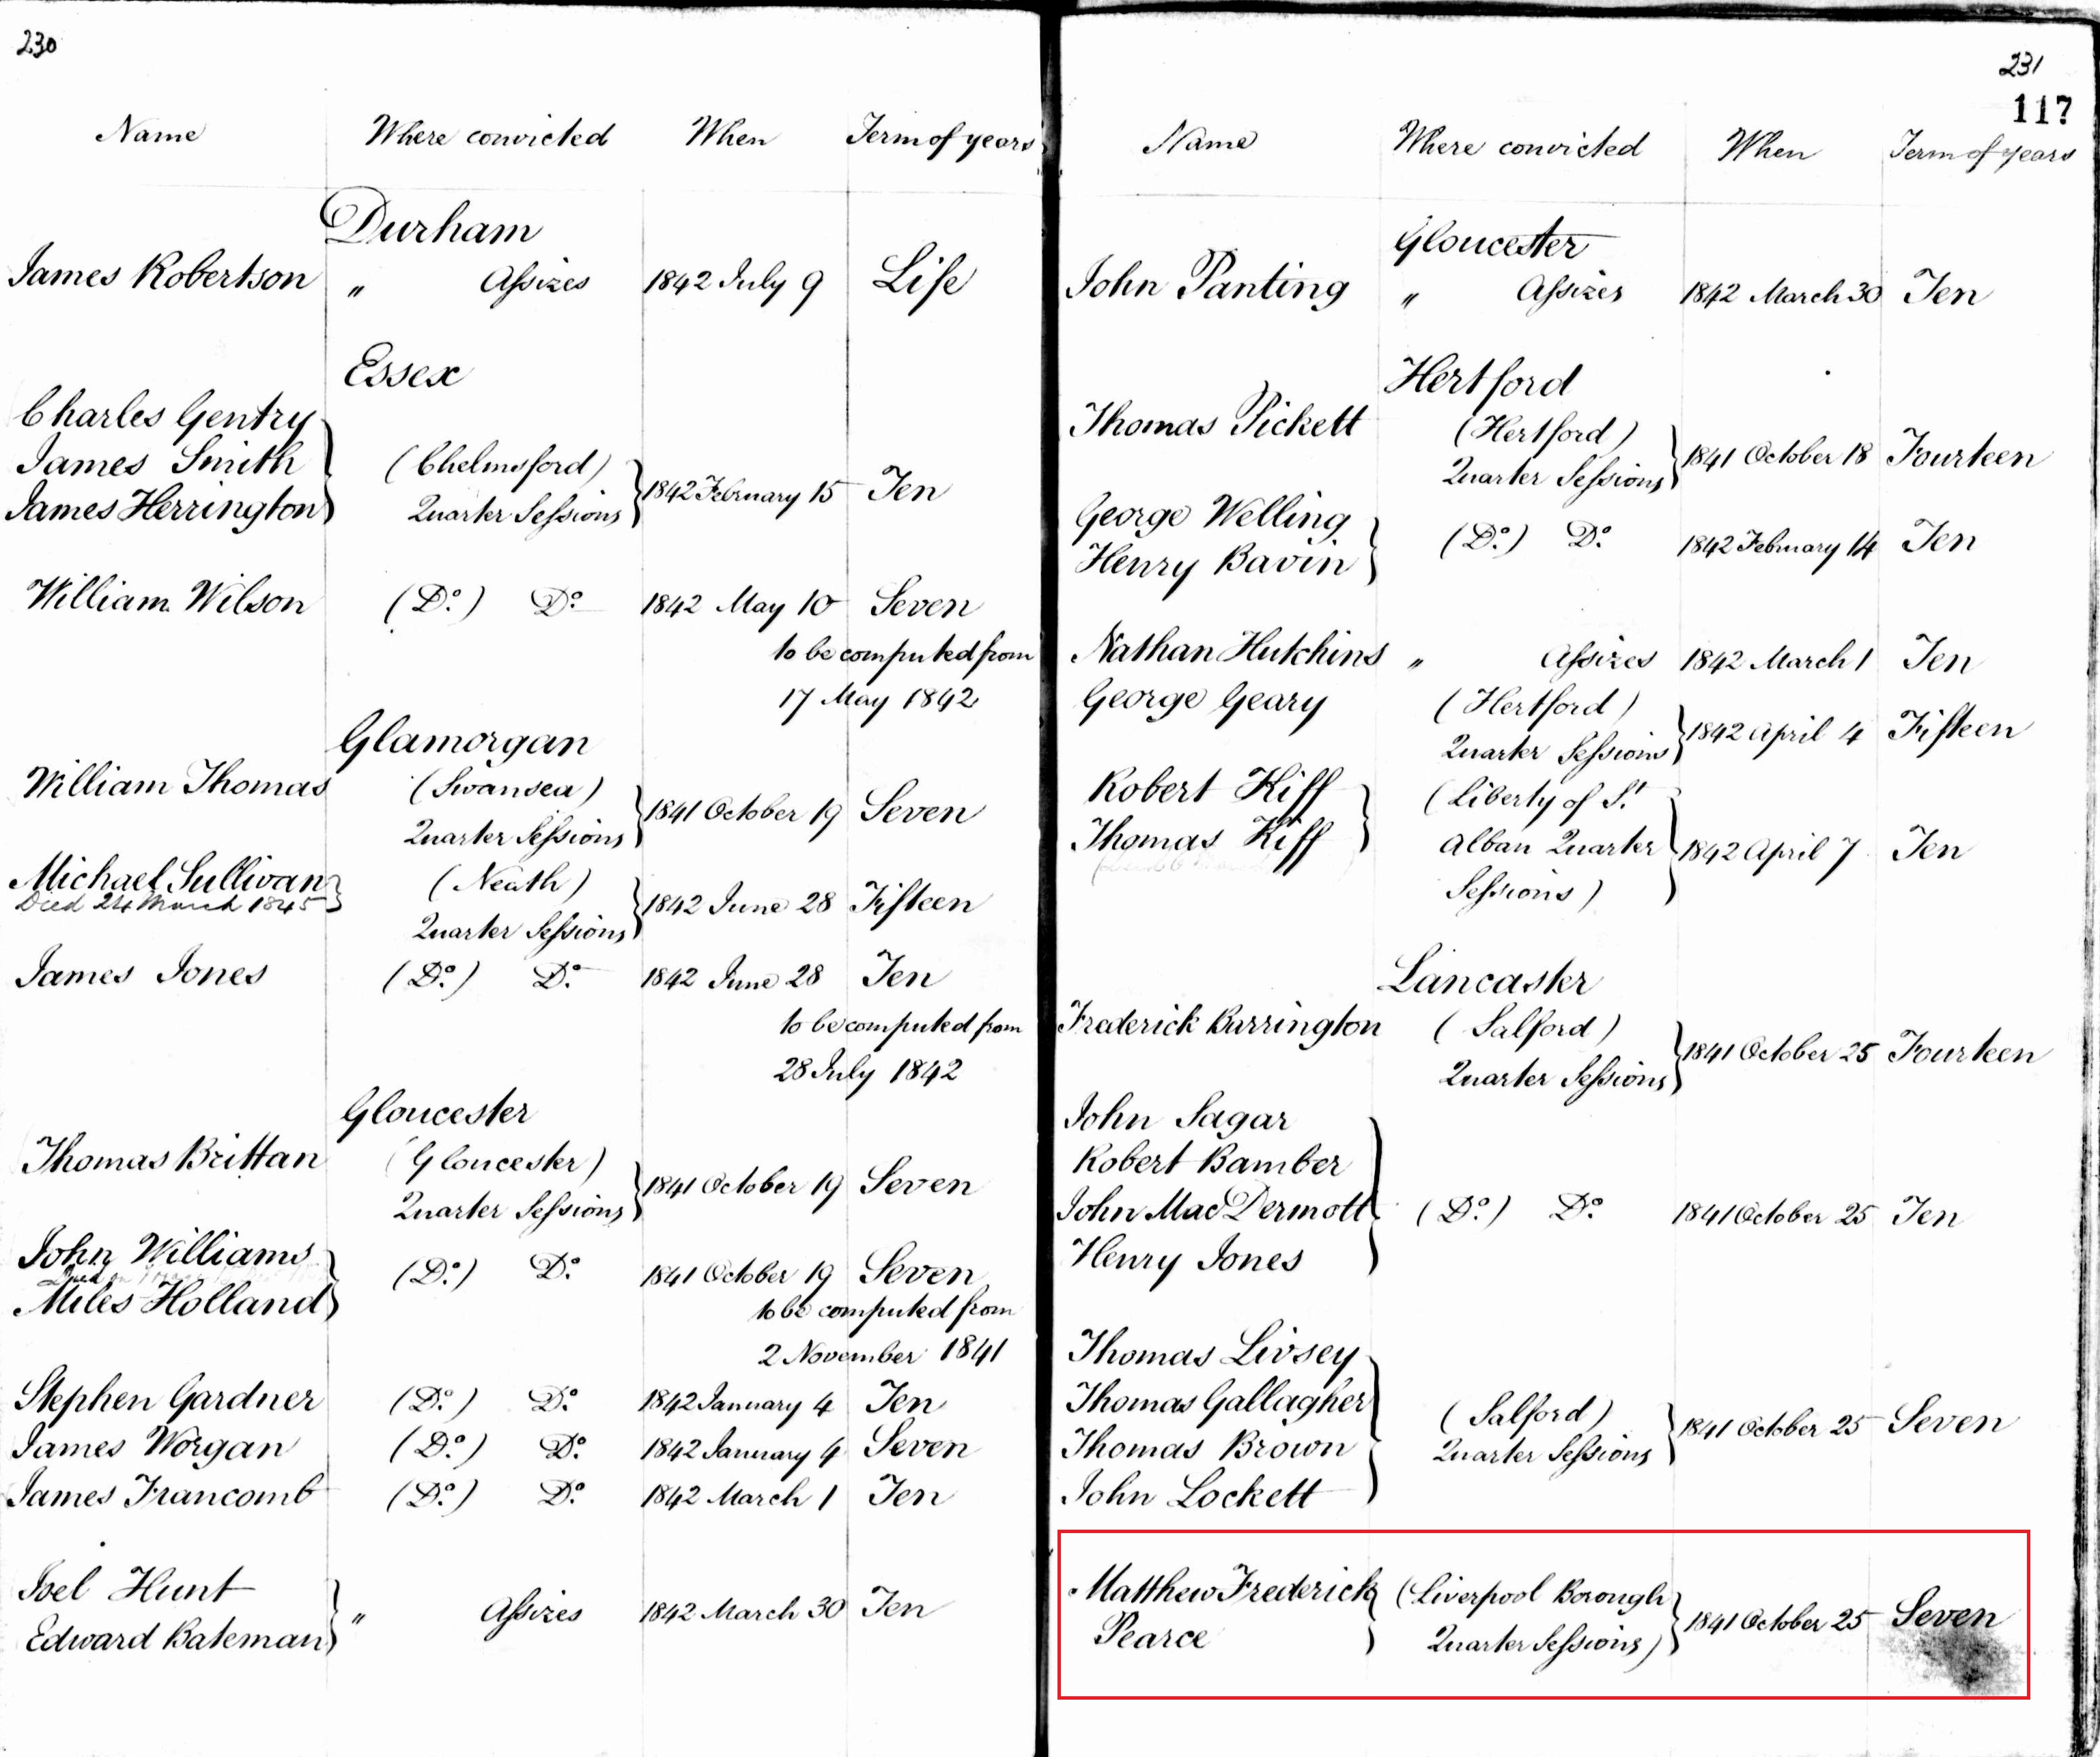 230
Name Where convicted When Term of years
Durham
James Robertson „ Assizes 1842 July 9 Life
Essex
Charles Gentry
James Smith (Chelmsford)
James Herrington Quarter Sessions 1842 February 15 Ten
William Wilson (Do.) Do. 1842 May 10 Seven
to be computed from
17 May 1842
Glamorgan
William Thomas (Swansea)
Quarter Sessions 1841 October 19 Seven
Michael Sullivan (Neath)
Died 24 March 1845
Quarter Sessions 1842 June 28 Fifteen
James Jones (Do.) Do. 1842 June 28 Ten
to be computed from
28 July 1842
Gloucester
Thomas Brittan (Gloucester)
Quarter Sessions 1841 October 19 Seven
John Williams
Miles Holland (Do.) Do. 1841 October 19 Seven
to be computed from
2 November 1841
Stephen Gardner (Do.) Do. 1842 January 4 Ten
James Worgan (Do.) Do. 1842 January 4 Seven
James Francomb (Do.) Do. 1842 March 1 Ten
Joel Hunt
Edward Bateman „ Assizes 1842 March 30 Ten
231
117
Name Where convicted When Term of years
Gloucester
John Panting „ Assizes 1842 March 30 Ten
Hertford
Thomas Pickett (Hertford)
Quarter Sessions 1841 October 18 Fourteen
George Welling
Henry Bavin (Do.) Do. 1842 February 14 Ten
Nathan Hutchins „ Assizes 1842 March 1 Ten
George Geary (Hertford)
Quarter Sessions 1842 April 4 Fifteen
Robert Kiff (Liberty of St.
Thomas Kiff Alban Quarter 1842 April 7 Ten
Sessions)
Lancaster
Frederick Barrington (Salford)
Quarter Sessions 1841 October 25 Fourteen
John Sagar
Robert Bamber
John Mac Dermott (Do.) Do. 1841 October 25 Ten
Henry Jones
Thomas Livsey
Thomas Gallagher (Salford)
Thomas Brown Quarter Sessions 1841 October 25 Seven
John Lockett
Matthew Frederick (Liverpool Borough
Pearce Quarter Sessions) 1841 October 25 Seven